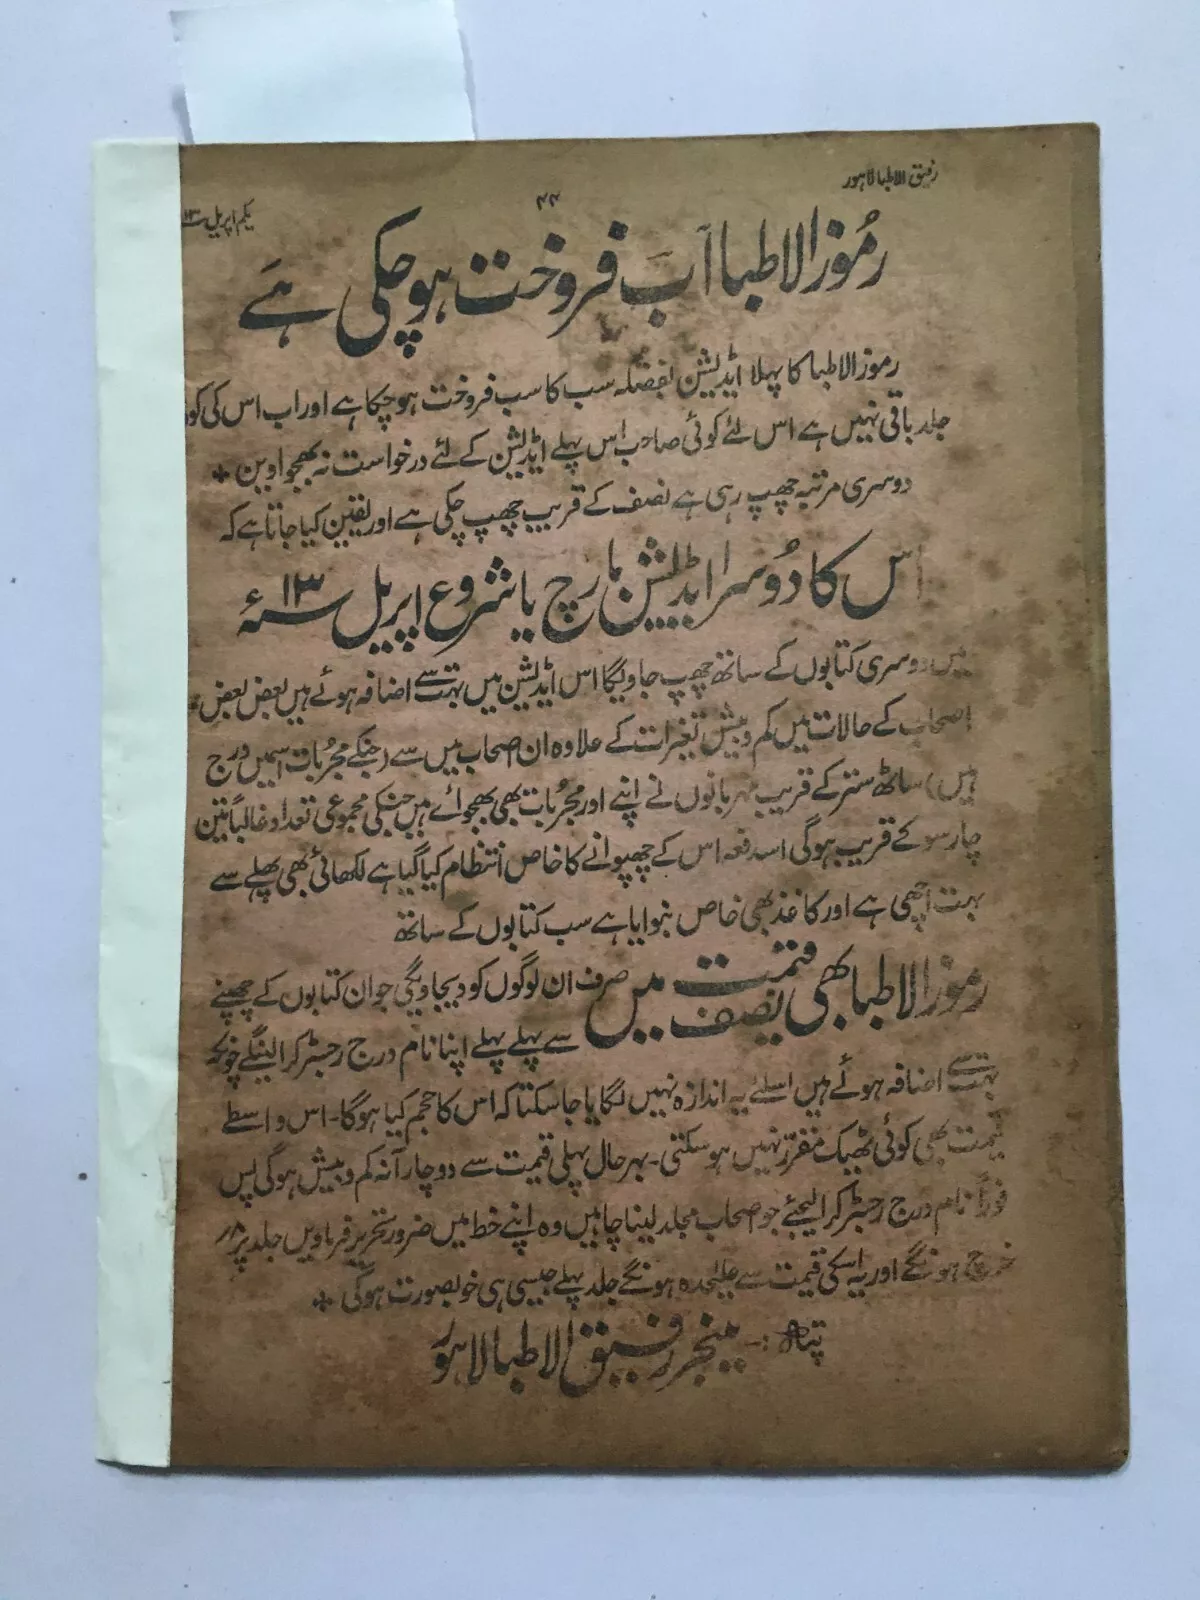 رفیق الاطبا لاہور
۴۴
یکم اپریل ۱۳ء
رُموز الاطبا اَب فروخت ہو چکی ہَے
رموز الاطبا کا پہلا ایڈیشن بفضلہ سب کا سب فروخت ہو چکا ہے اور اب اس کی کوئی
جلد باقی نہیں ہے اس لئے کوئی صاحب اس پہلے ایڈیشن کے لئے درخواست نہ بھجواویں
دوسری مرتبہ چھپ رہی ہے نصف کے قریب چھپ چکی ہے اور یقین کیا جاتا ہے کہ
اس کا دُوسرا ایڈیشن مارچ یا شروع اپریل ۱۳ء
میں دوسری کتابوں کے ساتھ چھپ جاویگا اس ایڈیشن میں بہت سے اضافہ ہوئے ہیں بعض بعض
اصحاب کے حالات میں کم و بیش تغیرات کے علاوہ ان اصحاب میں سے (جنکے مجربات اسمیں درج
ہیں) ساٹھ ستر کے قریب مہربانوں نے اپنے اور مجرُبات بھی بھجوائے ہیں جنکی مجموعی تعداد غالباً تین
چار سو کے قریب ہوگی اسدفعہ اس کے چھپوانے کا خاص انتظام کیا گیا ہے لکھائی بھی پہلے سے
بہت اچھی ہے اور کاغذ بھی خاص بنوایا ہے سب کتابوں کے ساتھ
رموز الاطبا بھی نصف قیمت میں صرف ان لوگوں کو دیجاویگی جو ان کتابوں کے چھپنے
سے پہلے پہلے اپنا نام درج رجسٹر کرا لینگے چونکہ
بہت سے اضافہ ہوئے ہیں اسلئے یہ اندازہ نہیں لگایا جا سکتا کہ اس کا حجم کیا ہوگا۔ اس واسطے
قیمت بھی کوئی ٹھیک مقرر نہیں ہو سکتی۔ بہر حال پہلی قیمت سے دو چار آنہ کم و بیش ہوگی پس
فوراً نام درج رجسٹر کرا لیجئے جو اصحاب مجلد لینا چاہیں وہ اپنے خط میں ضرور تحریر فرماویں جلد پر ۸/
خرچ ہونگے اور یہ اسکی قیمت سے علیحدہ ہونگے جلد پہلے جیسی ہی خوبصورت ہوگی
پتہ:۔ مینجر رفیق الاطبا لاہور